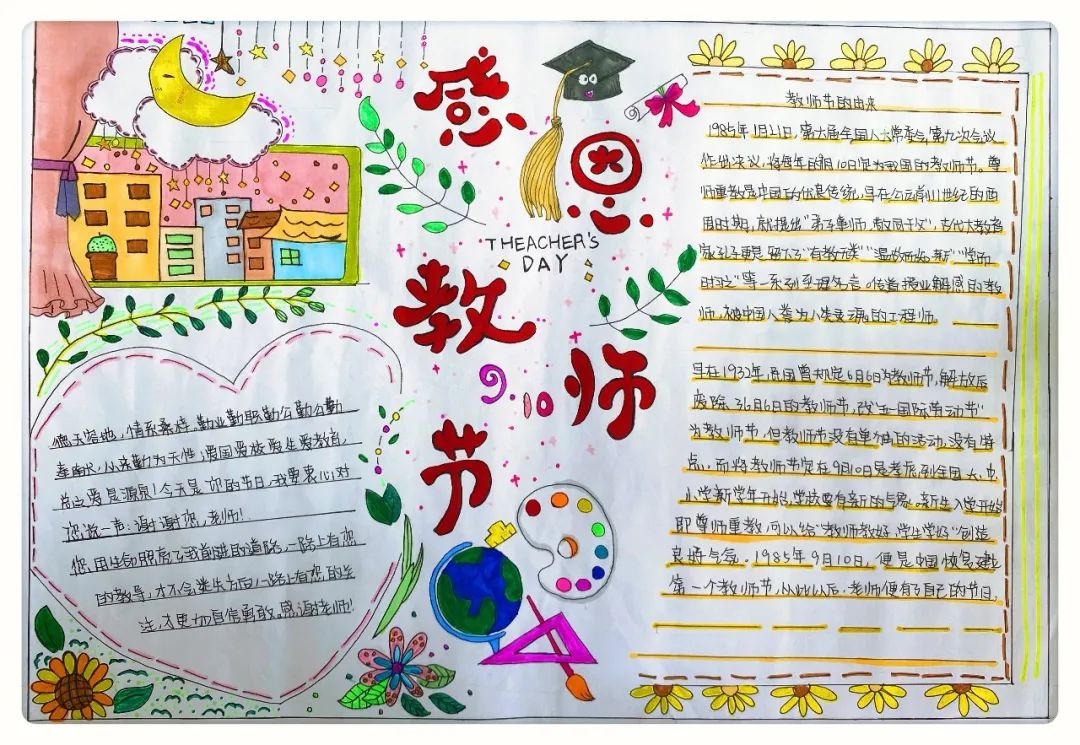 感恩
THEACHER'S
DAY
教师
9.10
节
德天容地,情系桑梓,勤业勤职勤公勤
爱国爱校爱生爱教育,
总之爱是源泉!今天是您的节日,我要衷心对
您说一声:谢谢您,老师!
您用生命照亮了我前进的道路,一路上有您
的教导,才不会迷失方向;一路上有您的关
注,才更加自信勇敢。感谢老师!
教师节的由来
1985年1月21日,第六届全国人大常委会第九次会议
作出决议,将每年的9月10日定为我国的教师节。尊
师重教是中国的优良传统,早在公元前11世纪的西
周时期,就提出"弟子事师,敬同于父",古代大教育
家孔子更是留下了"有教无类""温故而知新""学而
时习之"等一系列至理名言。传道授业解惑的教
师,被中国人誉为人类灵魂的工程师。
早在1932年,民国曾规定6月6日为教师节,解放后
废除了6月6日的教师节,改"五一国际劳动节"
为教师节,但教师节没有单独的活动,没有特
点,而将教师节定在9月10日是考虑到全国大、中
小学新学年开始,学校要有新的气象。新生入学开始
即尊师重教,可以给"教师教好,学生学好"创造
良好气氛。1985年9月10日,便是中国恢复建立
第一个教师节,从此以后,老师便有了自己的节日。